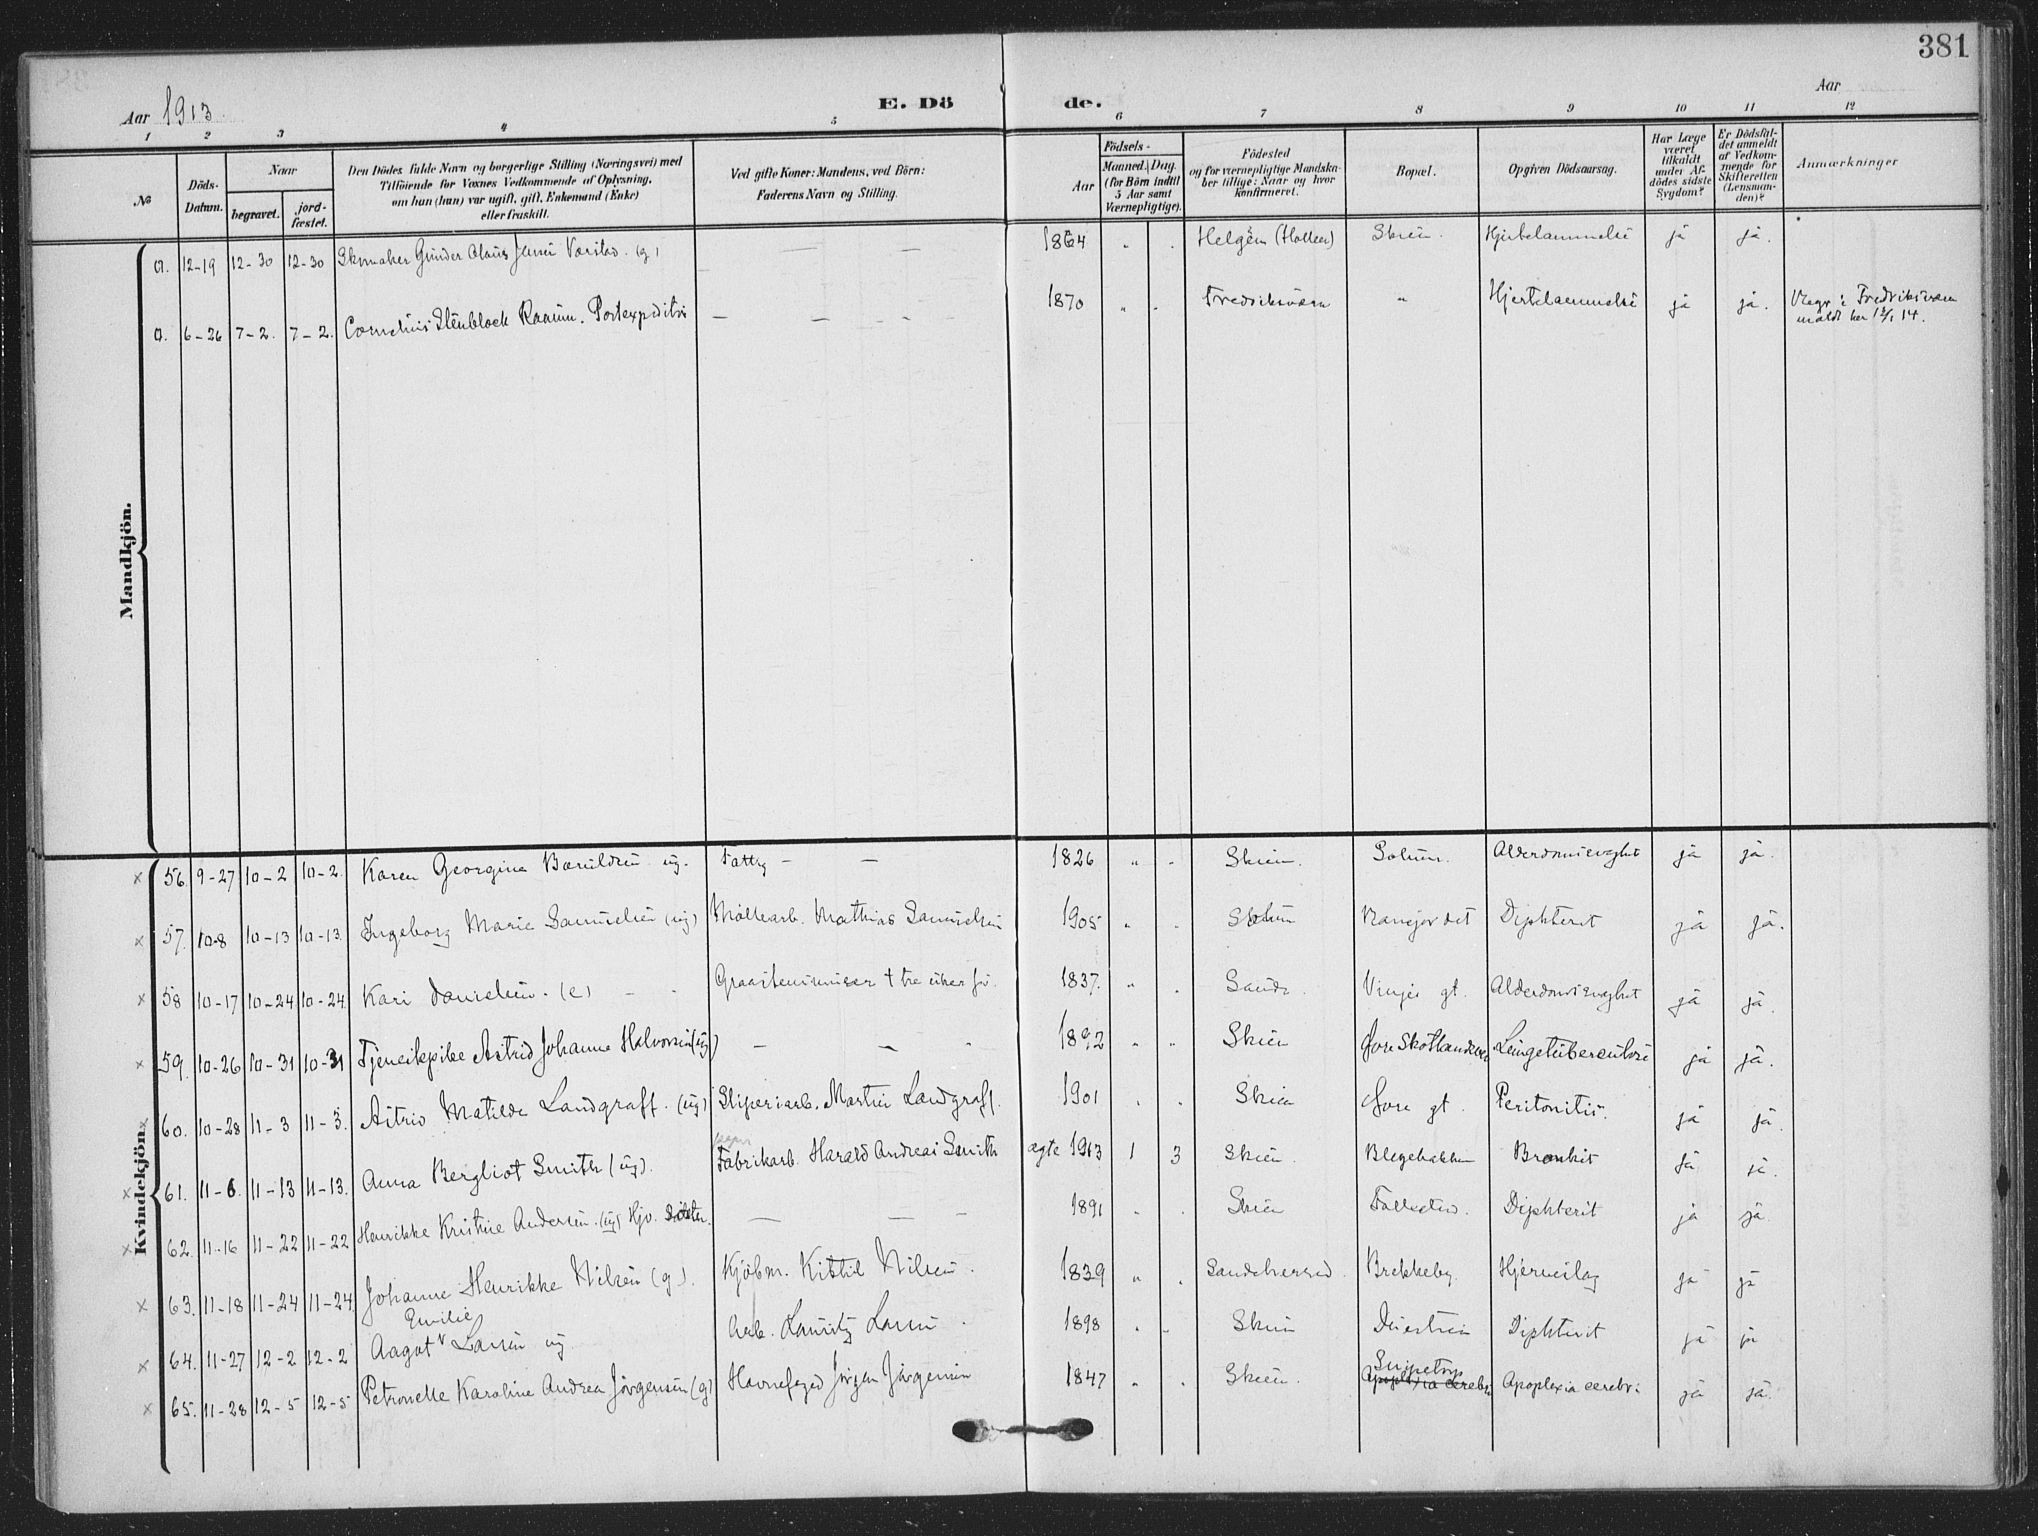 381
Aar 1913.
E. Dö de.
Aar
1 2 3 4 5 6 7 8 9 10 11 12
No
Döds-Datum.
Naar
begravet.
jord-fæstet.
Den Dödes fulde Navn og borgerlige Stilling (Næringsvei) med
Tilföiende for Voxnes Vedkommende af Oplysning,
om hun (han) var ugift, gift, Enkemand (Enke)
eller fraskilt.
Ved gifte Koner: Mandens, ved Börn:
Faderens Navn og Stilling.
Födsels-
Aar
Maaned. Dag.
(for Börn indtil
5 Aar samt
Værnepligtige).
Födested
og for værnepligtige Mandska-
ber tillige: Naar og hvor
konfirmeret.
Bopæl.
Opgiven Dödsaarsag.
Har Læge
været
tilkaldt
under Af-
dödes sidste
Sygdom?
Er Dödsfal-
det anmeldt
af Vedkom-
mende for
Skifteretten
(Lensman-
den)?
Anmærkninger
Mandkjön.
a. 12-19 12-30 12-30 Skomaker Gunder Olaus Jensen (g) — 1864 " . Helgen (Hollen) Skien. Hjertelammelse ja ja.
a. 6-26 7-2. 7-2. Cornelius Stenblock Raaum. Postexpeditør — — 1870 " . Fredriksværn " Hjertelammelse ja ja. i Fredriksværn
meldt her 14.
Kvindekjön.
x 56. 9-27 10-2 10-2. Karen Georgine ug. Fattig — — 1826 " . Skien. Solum. Alderdomssvaghet ja ja.
x 57. 10-8 10-13 10-13. Ingeborg Marie Samuelsen (ug) Møllearb. Mathias Samuelsen 1905 " . Solum Difterit ja ja.
x 58 10-17 10-24 10-24 Kari Danielsen. (e) — 1837. " . Sande. Vinjes gt. Alderdomssvaghet ja ja.
x 59. 10-26 10-31 10-31 Tjenestepike Astrid Johanne Halvorsen (ug) — — 1892 " " Skien Lungetuberculose ja ja.
x 60. 10-28 11-3 11-3. Astrid Matilde Landgraff. (ug) Sliperiarb. Martin Landgraff. 1901 . . Skien gt. Peritonitis. ja ja.
x 61. 11-6. 11-13 11-13. Anna Bergliot Smith (ug). Fabrikarb. Harald Andreas Smith ægte 1913 1 3 Skien. Blegebakken Bronkit ja ja.
x 62. 11-16 11-22 11-22 Henrikke Kristine Andersen. (ug) — — 1891 . . Skien Follestad. Diphterit ja ja.
x 63. 11-18 11-24 11-24 Johanne Henrikke Nilsen (g). Kjøbm. Kittil Nilsen. 1839 " . Sandeherred. Brekkeby. Hjerneslag ja ja
Emilie
x 64. 11-27 12-2 12-2 Aagot v Larsen ug. Arb. Lauritz Larsen. 1898 . . Skien Duestien Diphterit ja ja
Snipetorp
x 65. 11-28 12-5 12-5 Petronelle Karoline Andrea Jörgensen (g) Havnefoged Jörgen Jörgensen 1847 . . Skien. Apoplexia cerebri Apoplexia cerebri ja ja.